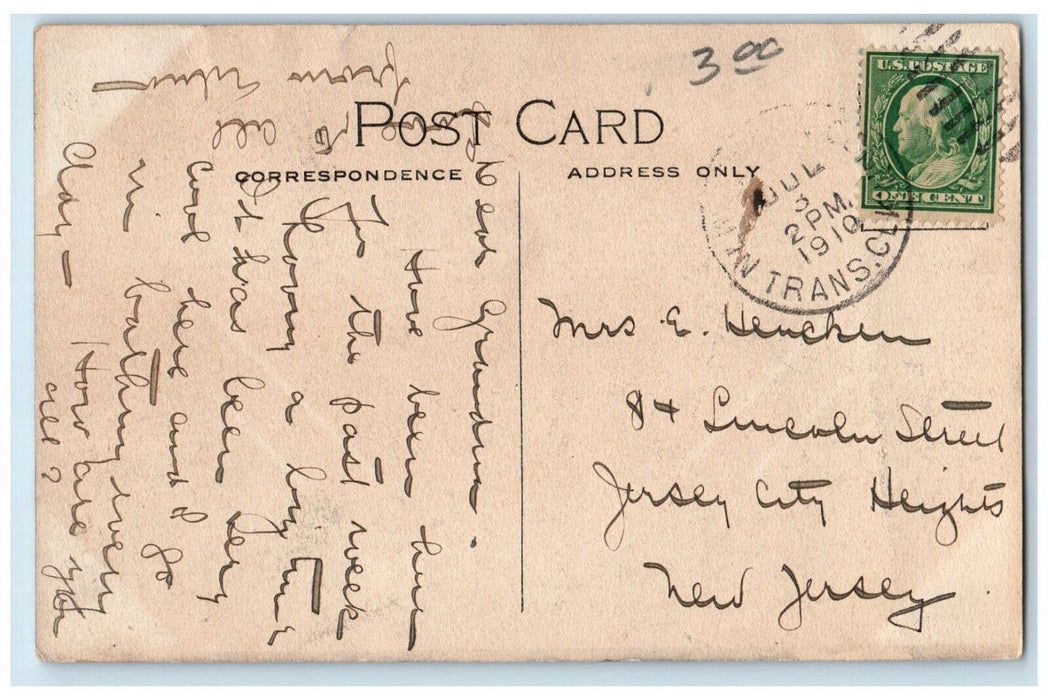 3.00
U.S. POSTAGE
ONE CENT
POST CARD
CORRESPONDENCE
ADDRESS ONLY
JUL
3
2 PM.
1910
TRANS. CLK
Dear Grandma.
Have been here
for the past week
Having a big time
It has been very
cool here and I go
in bathing every
day — How are you
all?
all
from
Mrs E. Hencken
84 Lincoln Street
Jersey City Heights
New Jersey.